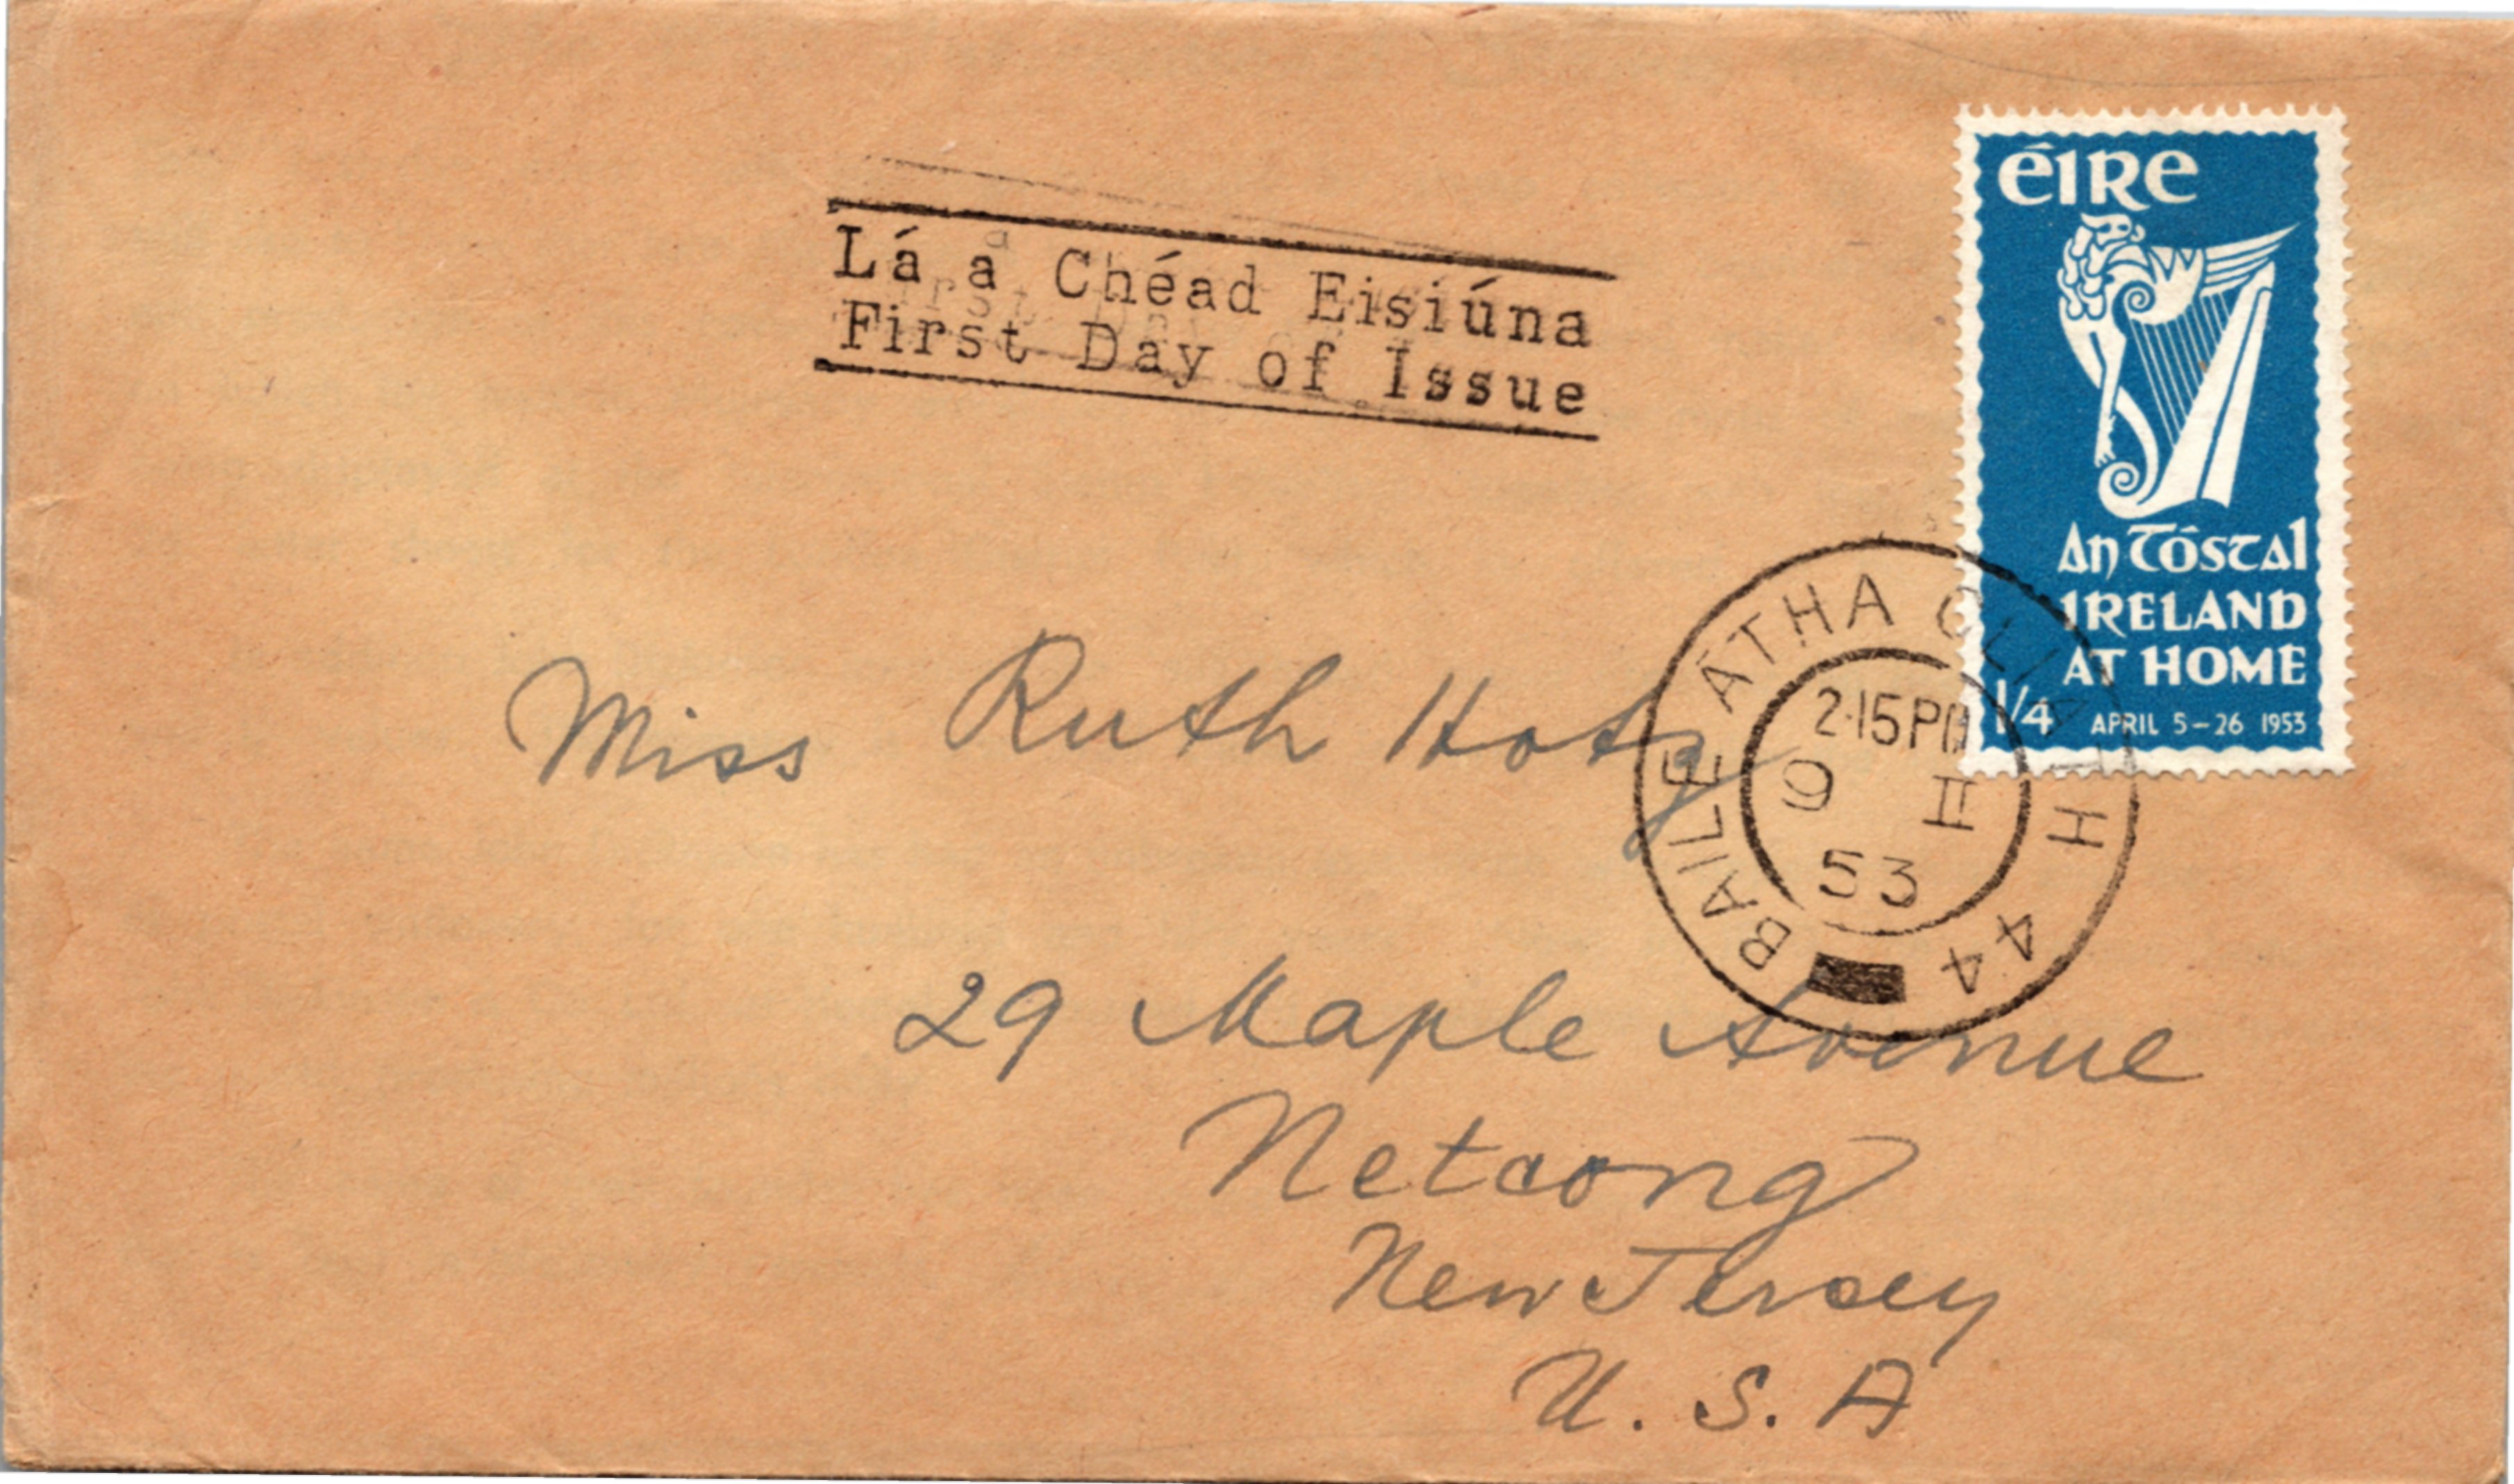 Lá a Chéad Eisiúna
First Day of Issue
éire
An Tóstal
IRELAND
AT HOME
1/4 APRIL 5-26 1953
BAILE ÁTHA CLIATH 44
2·15PM
9 II
53
Miss Ruth Hotz
29 Maple Avenue
Netcong
New Jersey
U.S.A